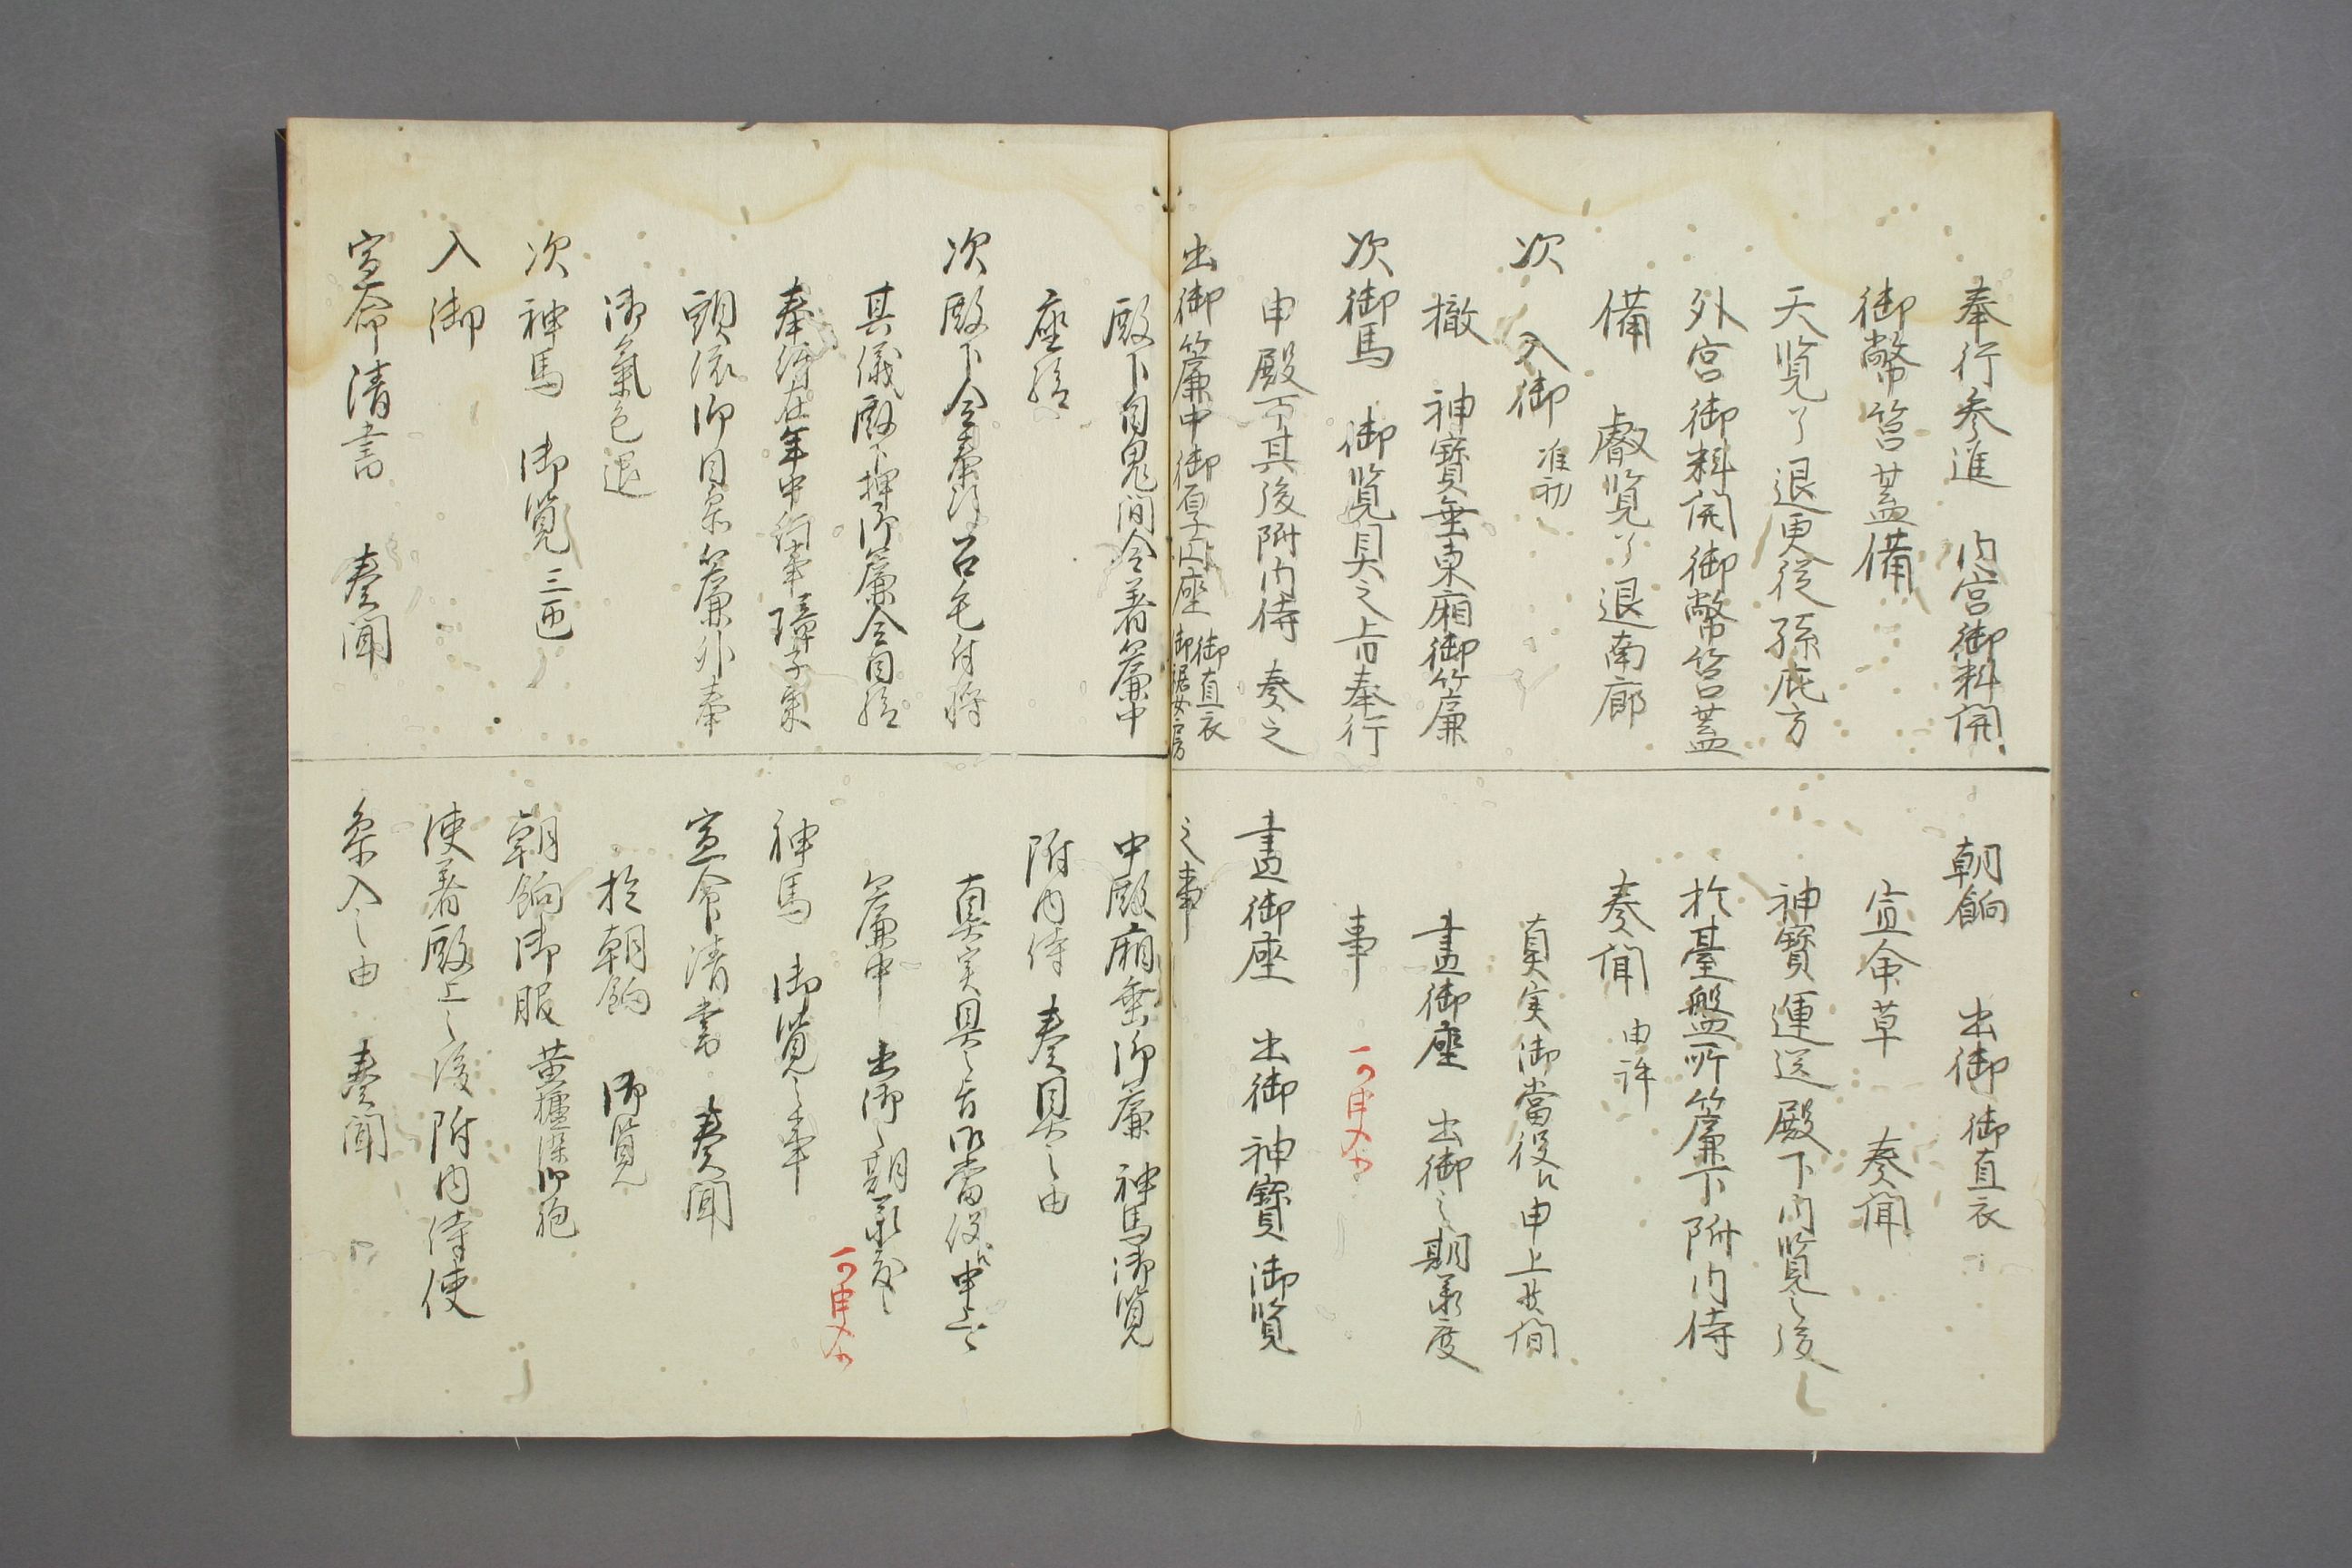 奉行参進 内宮御料開
御幣筥蓋備
天覧了 退更従孫庇方
外宮御料開御幣筥蓋
備 叡覧了退南廊
次 入御 准初
撤 神寶垂東廂御簾
次御馬 御覧具之旨奉行
申殿下其後附内侍 奏之
出御簾中御厚圓座 御直衣 御裾女房
朝餉 出御 御直衣
宣命草 奏聞
神寶運送殿下内覧之後
於臺盤所簾下附内侍
奏聞 由許
真実御當役ヘ申上其間
晝御座 出御之期承度
事 可申入カ
晝御座 出御 神寶御覧
之事
殿下自鬼間令著簾中
座給
次殿下令奏御召毛付将
其儀殿下押御簾令目給
奉行在年中行事障子東
頭依御目参簾外奉
御氣色退
次神馬 御覧三匝
入御
宣命清書 奏聞
中殿廂垂御簾 神馬御覧
附内侍 奏具之由
真実具之旨御當役ヘ申上
簾中 出御之期承度之
可申入カ
神馬 御覧之事
宣命清書 奏聞
於朝餉 御覧
朝餉御服 黄櫨染御袍
使著殿上之後附内侍使
参入之由 奏聞